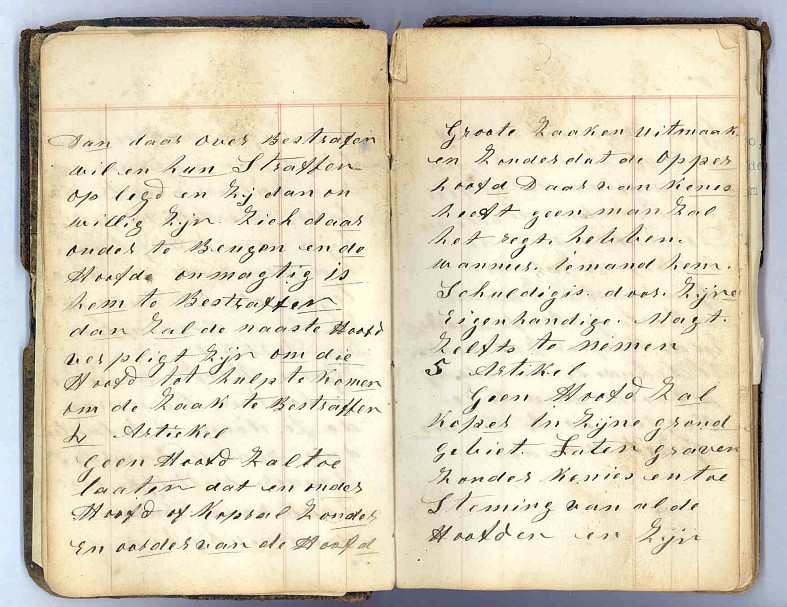 Dan daar over Bestrafen
wil en hun Straffen
op legd en Zij dan on
willig Zijn Zich daar
onder te Beugen en de
Hoofde onmagtig is
hem te Bestraffen
dan Zal de naaste Hoofd
verpligt Zijn om die
Hoofd tot hulp te komen
om de Zaak te Bestraffen
4 Artickel
Geen Hoofd Zal toe
laaten dat en onder
Hoofd of Kopral Zonder
En oorder van de Hoofd
Groote Zaaken uitmaak
en Zonder dat de Opper
hoofd Daar van Kenis
heeft geen man Zal
het regt. hebben.
wanneer. iemand hem.
Schuldig is. door. Zijne
Eigenhandige. Magt.
Zelfts te nimen
5 Artikel
Geen Hoofd Zal
Koper in Zijne grond
gebiet. Laten graven
Zonder Kenies en toe
Steming van al de
Hoofden en Zijn